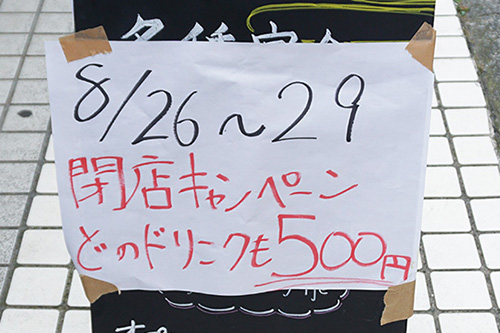 8/26～29
閉店キャンペーン
どのドリンクも500円